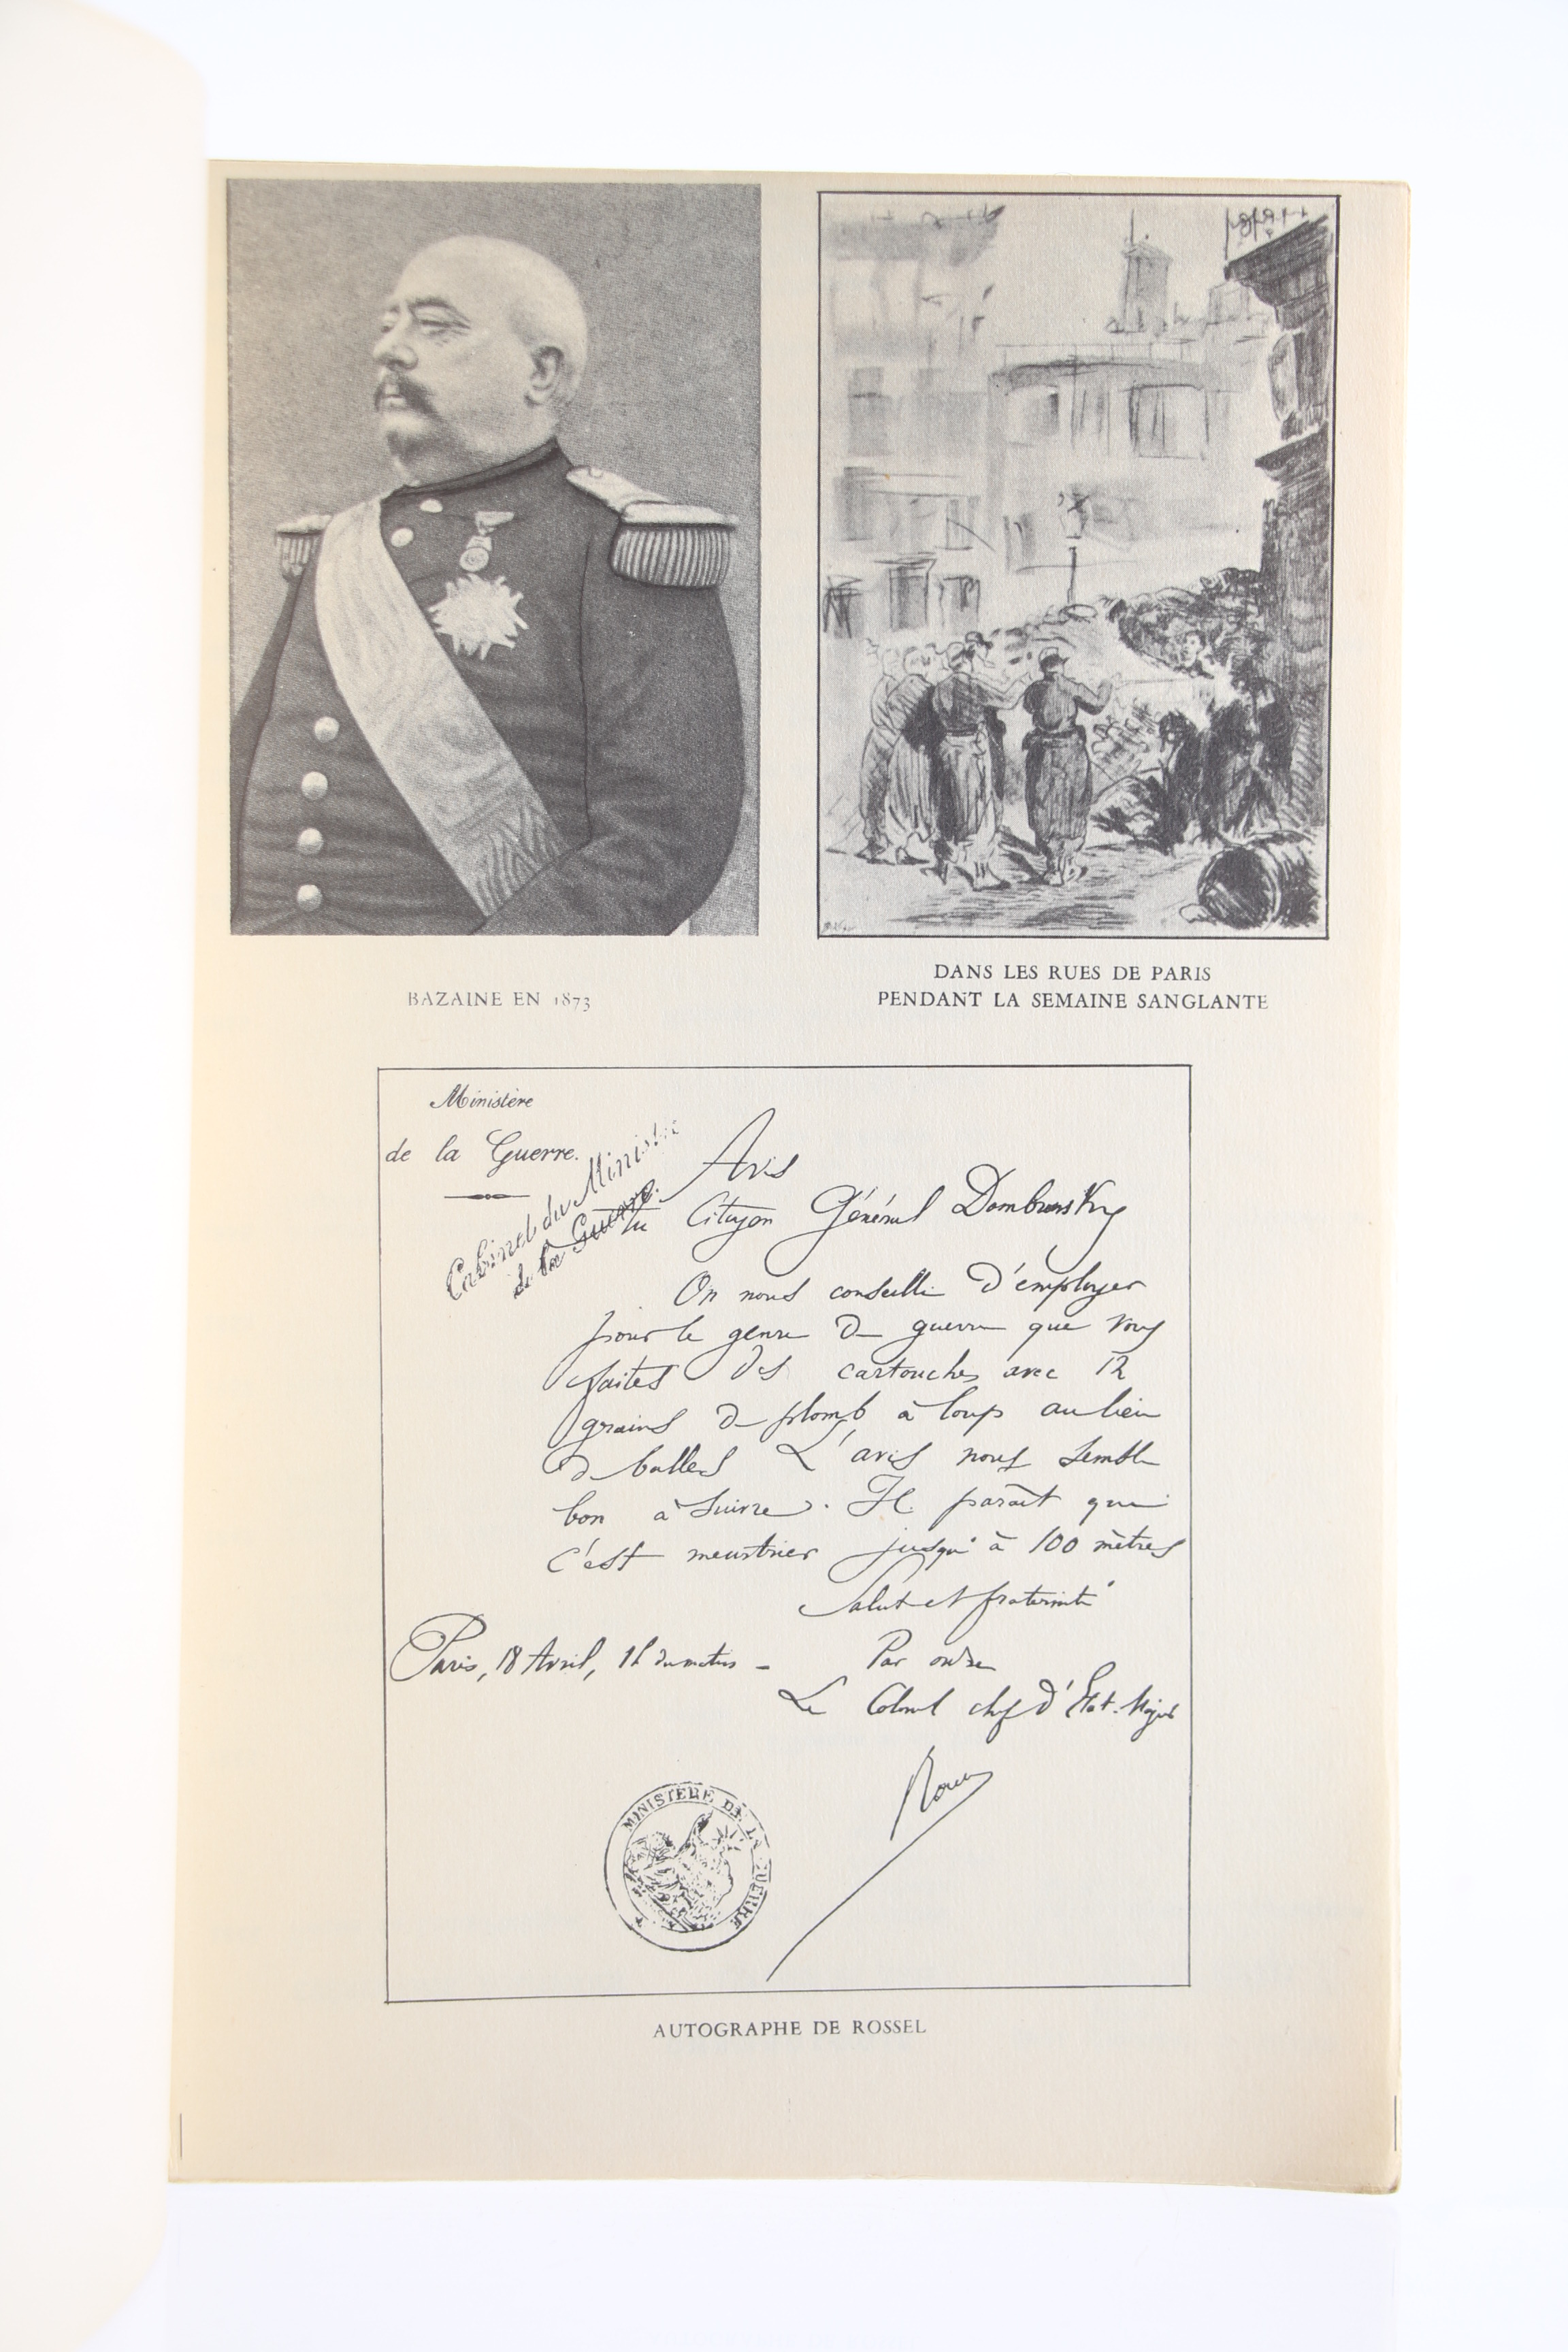 BAZAINE EN 1873
DANS LES RUES DE PARIS
PENDANT LA SEMAINE SANGLANTE
Ministère
de la Guerre.
Cabinet du Ministre
de la Guerre.
Avis
Au Citoyen Général Dombrowsky
On nous conseille d'employer
pour le genre de guerre que vous
faites des cartouches avec 12
grains de plomb à loup au lieu
de balles L'avis nous semble
bon à suivre. Il paraît que
c'est meurtrier jusqu'à 100 mètres
Salut et fraternité
Paris, 18 Avril, 1h du matin -
Par ordre
Le Colonel chef d'État-Major
Rossel
MINISTERE DE LA GUERRE
AUTOGRAPHE DE ROSSEL